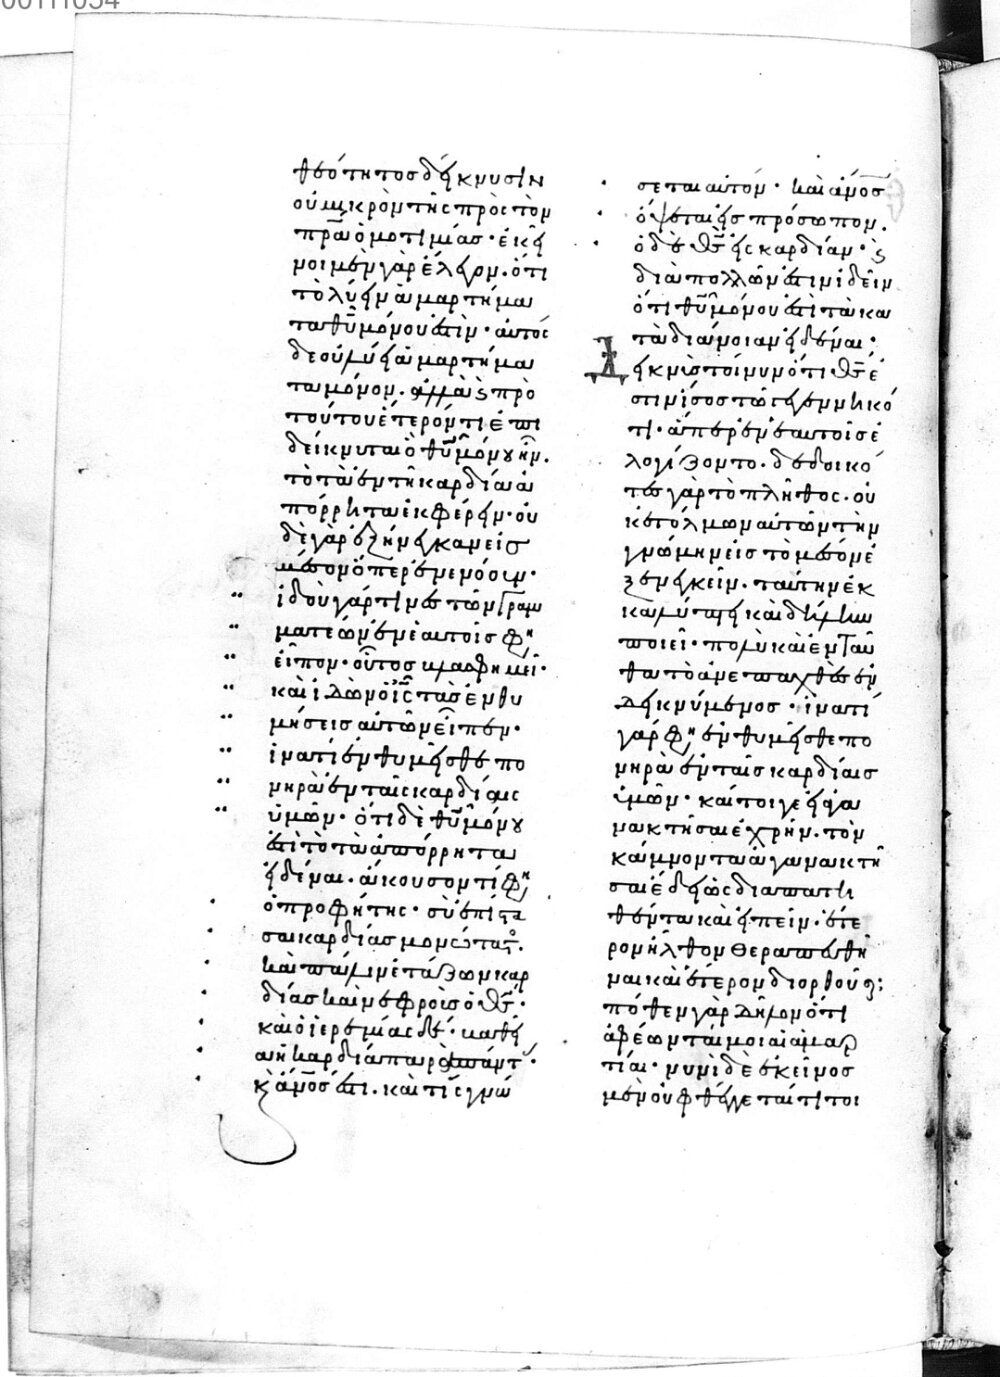 θεότητος δείκνυσιν
οὐ μικρὸν τῆς πρὸς τὸν
πρ̅α ὁμοτιμίας · ἐκεῖ
νοι μὲν γὰρ ἔλεγον · ὅτι
τὸ λύειν ἁμαρτήμα
τα θυ̅ μόνου ἐστὶν · αὐτὸς
δὲ οὐ λύει ἁμαρτήμα
τα μόνον · ἀλλὰ καὶ πρὸ
τούτου ἕτερόν τι ἐπι
δείκνυται ὃ θυ̅ μόνου ἦν ·
τὸ τὰ ἐν τῆ καρδία ἀ
πόρρητα ἐκφέρειν · οὐ
δὲ γὰρ ἐξήνεγκαν εἰς
μέσον ὅπερ ἐνενόουν ·
ἰδοὺ γάρ τινες τῶν γραμ
ματέων ἐν ἑαυτοῖς φη
εἶπον · οὗτος βλασφημεῖ ·
καὶ ἰδὼν ὁ ις̅ τὰς ἐνθυ
μήσεις αὐτῶν εἶπεν ·
ἱνατί ἐνθυμεῖσθε πο
νηρὰ ἐν ταῖς καρδίαις
ὑμῶν · ὅτι δὲ θυ̅ μόνου
ἐστὶ τὸ τὰ ἀπόρρητα
εἰδέναι · ἄκουσον τί φη
ὁ προφήτης · σὺ ἐπίστα
σαι καρδίας μονώτατος ·
καὶ πάλιν ἐτάζων καρ
δίας καὶ νεφροὺς ὁ θς̅ ·
καὶ ὁ ἱερεμίας δὲ · βαθεῖ
α ἡ καρδία παρὰ πάντα ·
καὶ ἄνος̅ ἐστι · καὶ τίς γνώ
σεται αὐτόν · καὶ ἄνος̅
ὄψεται εἰς πρόσωπον ·
ὁ δὲ θς̅ εἰς καρδίαν · καὶ
διὰ πολλῶν ἐστιν ἰδεῖν
ὅτι θυ̅ μόνου ἐστὶ τὰ κα
τὰ διάνοιαν εἰδέναι ·
Δεικνὺς τοίνυν ὅτι θς̅ ἐ
στιν ἴσος τῶ γεγεννηκό
τι · ἅπερ ἐν ἑαυτοῖς ἐ
λογίζοντο · δεδοικό
τες γὰρ τὸ πλῆθος · οὐ
κ ἐτόλμων αὐτῶν τὴν
γνώμην εἰς τὸ μέσον ἐ
ξενεγκεῖν · ταύτην ἐκ
καλύπτει καὶ δήλην
ποιεῖ · πολὺ καὶ ἐνταῦ
θα τὸ ἀνεπαχθὲς ἐν
δεικνύμενος · ἱνατί
γάρ φη ἐνθυμεῖσθε πο
νηρὰ ἐν ταῖς καρδίαις
ὑμῶν · καίτοιγε εἰ ἀγα
νακτῆσαι ἐχρῆν · τὸν
κάμνοντα ἀγανακτῆ
σαι ἔδει ὡς διαπατη
θέντα καὶ εἰπεῖν · ἕτε
ρον ἦλθον θεραπευθῆ
ναι καὶ ἕτερον διορθοῖς ;
πόθεν γὰρ δῆλον ὅτι
ἀφέωνταί μοι αἱ ἁμαρ
τίαι · νυνὶ δὲ ἐκεῖνος
μὲν οὐ φθέγγεταί τι τοι